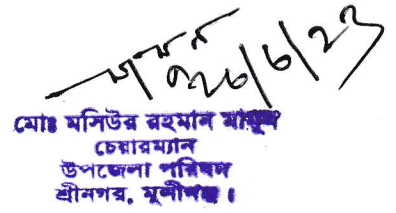 ২৬/৬/২৩
মোঃ মসিউর রহমান মামুন
চেয়ারম্যান
উপজেলা পরিষদ
শ্রীনগর, মুন্সীগঞ্জ।